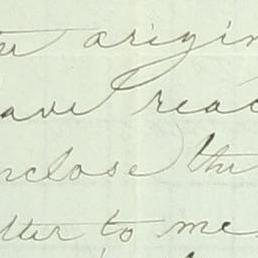 the origin
ave reac
nclose the
tter to me